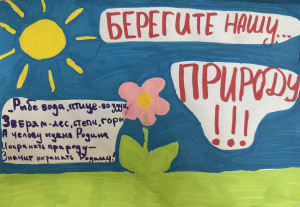 БЕРЕГИТЕ НАШУ...
ПРИРОДУ
!!!
Рыбе вода, птице-воздух,
Зверям-лес, степи, горы
А человеку нужна Родина
И охранять природу—
Значит охранять Родину!